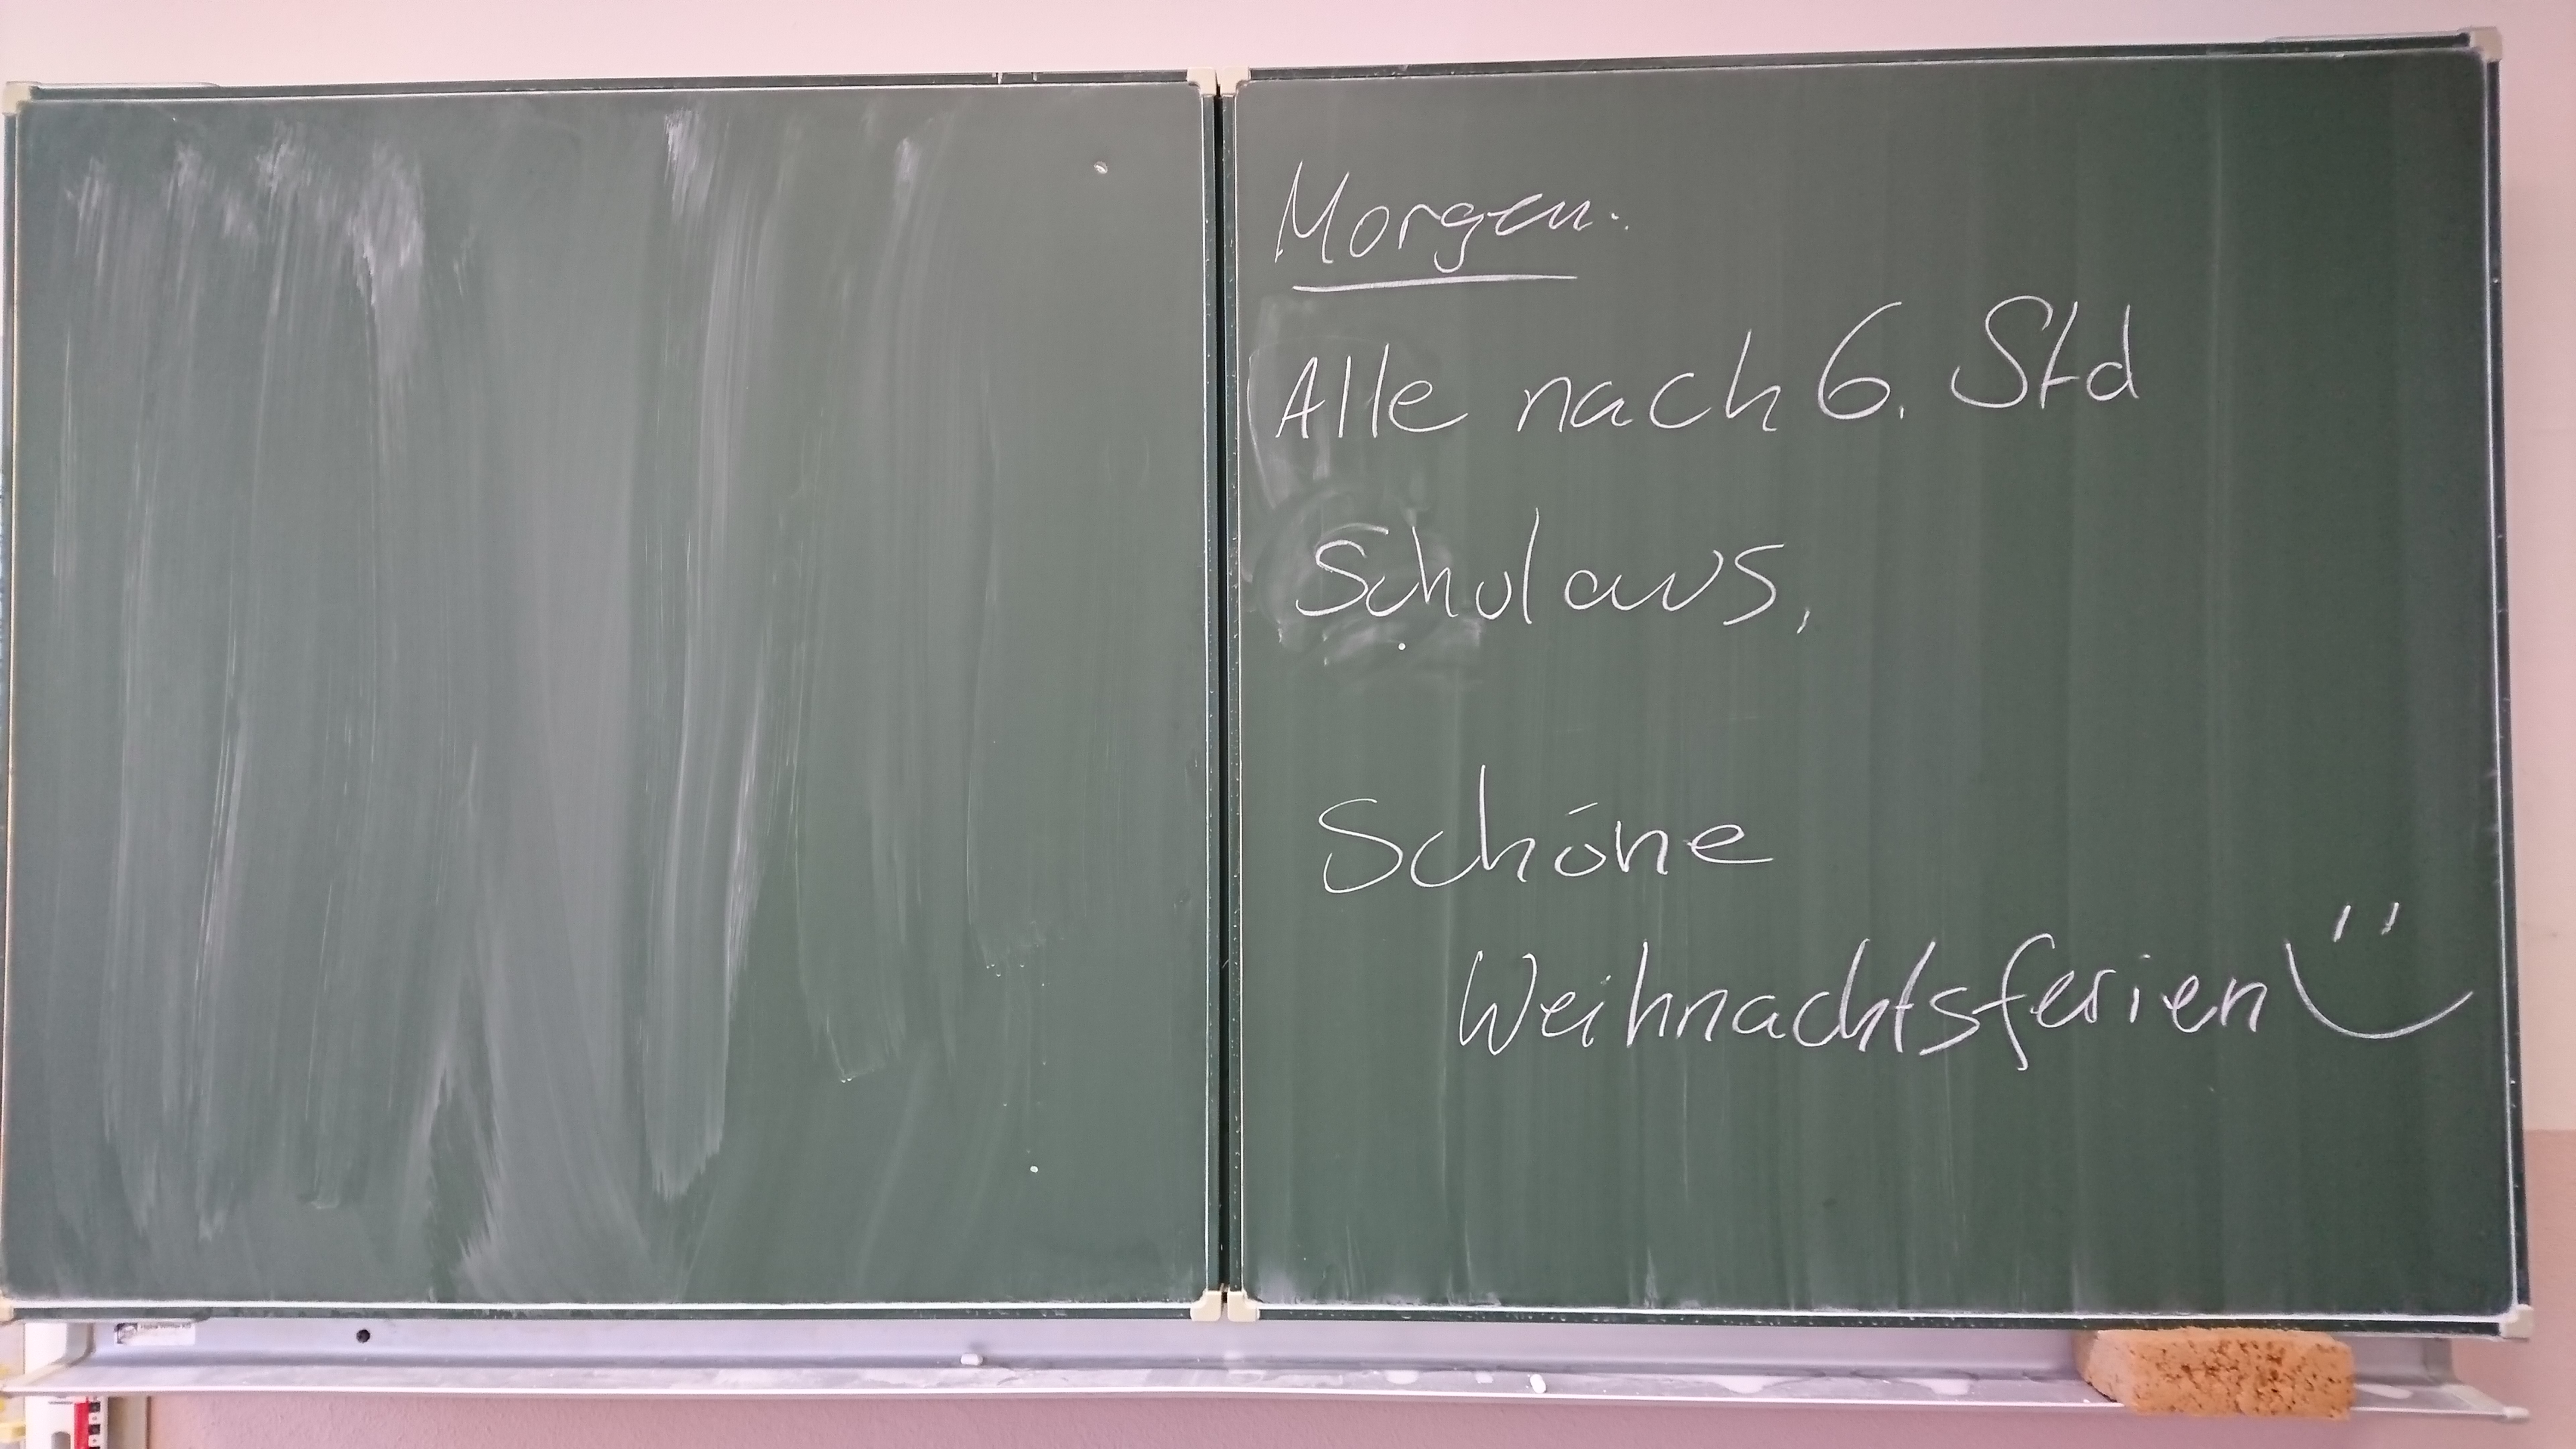 Morgen:
Alle nach 6. Std
Schulaus,
Schöne
Weihnachtsferien